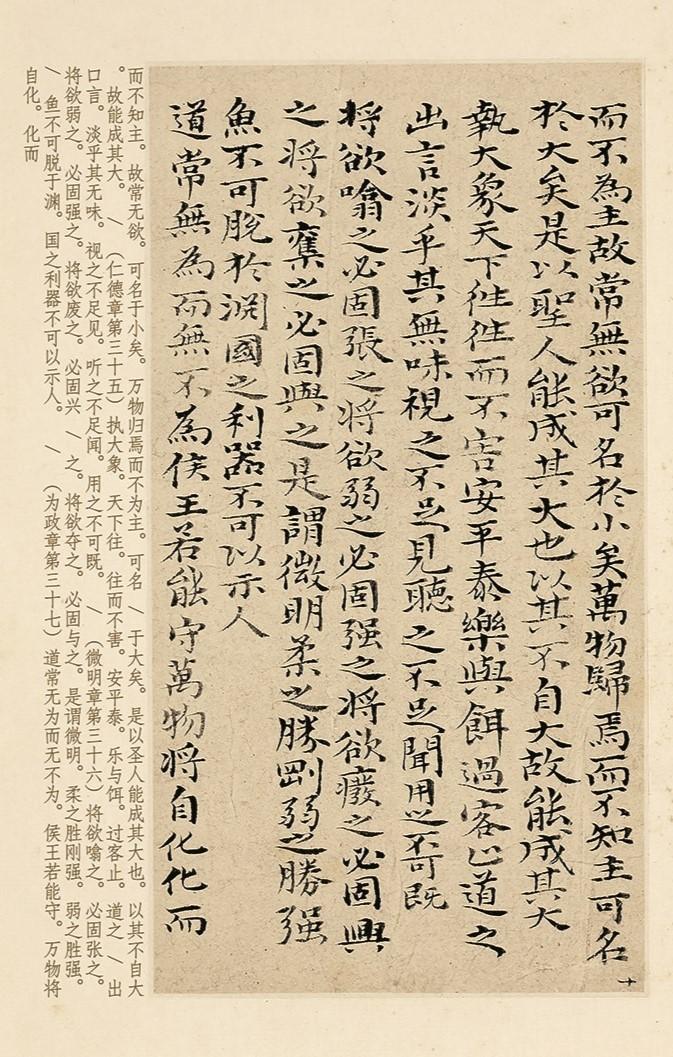 而不為主故常無欲可名於小矣萬物歸焉而不知主可名
於大矣是以聖人能成其大也以其不自大故能成其大
執大象天下往往而不害安平泰樂與餌過客止道之
出言淡乎其無味視之不足見聽之不足聞用之不可既
将欲噏之必固張之将欲弱之必固强之将欲廢之必固興
之将欲奪之必固與之是謂微明柔之勝剛弱之勝强
魚不可脫於淵國之利器不可以示人
道常無為而無不為侯王若能守萬物将自化化而
十
而不知主。故常无欲。可名于小矣。万物归焉而不为主。可名 / 于大矣。是以圣人能成其大也。以其不自大
。故能成其大。 / （仁德章第三十五）执大象。天下往。往而不害。安平泰。乐与饵。过客止。道之 / 出
口言。淡乎其无味。视之不足见。听之不足闻。用之不可既。 / （微明章第三十六）将欲噏之。必固张之。
将欲弱之。必固强之。将欲废之。必固兴 / 之。将欲夺之。必固与之。是谓微明。柔之胜刚强。弱之胜强。
/ 鱼不可脱于渊。国之利器不可以示人。 / （为政章第三十七）道常无为而无不为。侯王若能守。万物将
自化。化而